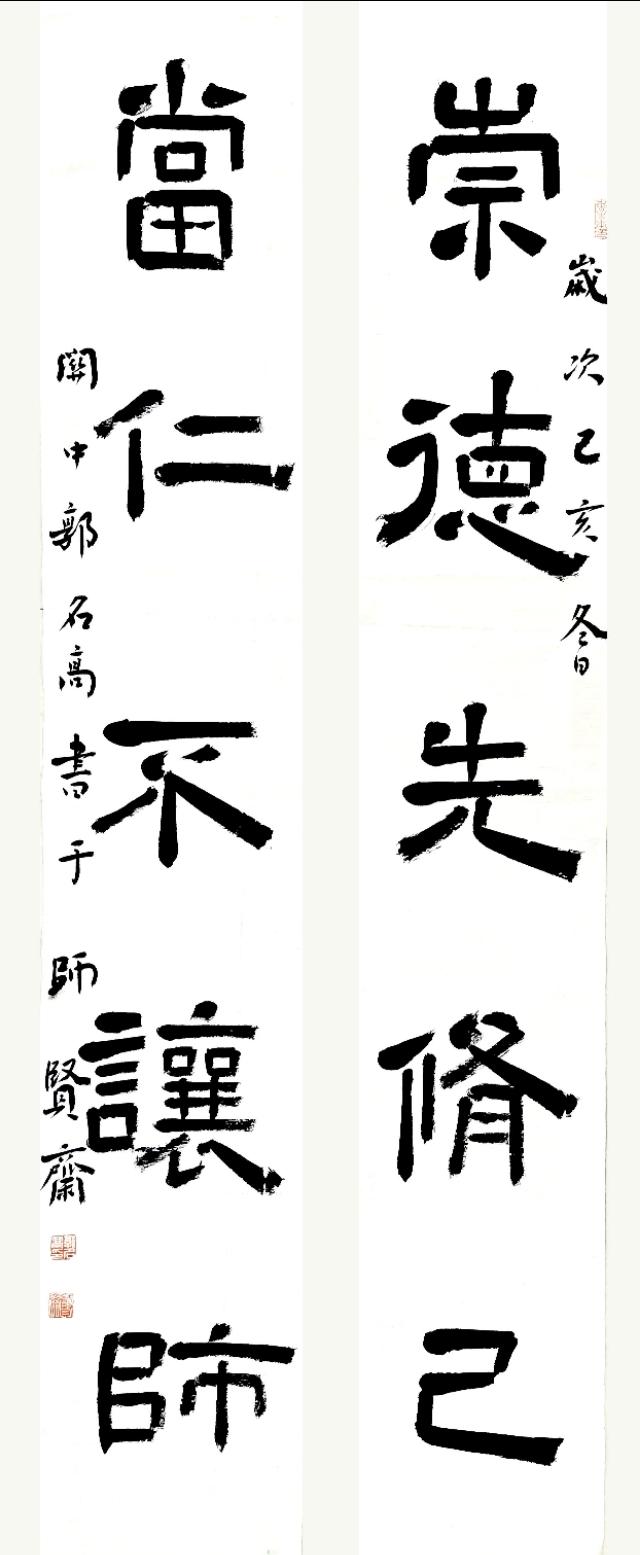 崇德先脩己
歲次己亥冬日
當仁不讓師
關中郭名高書于師賢齋